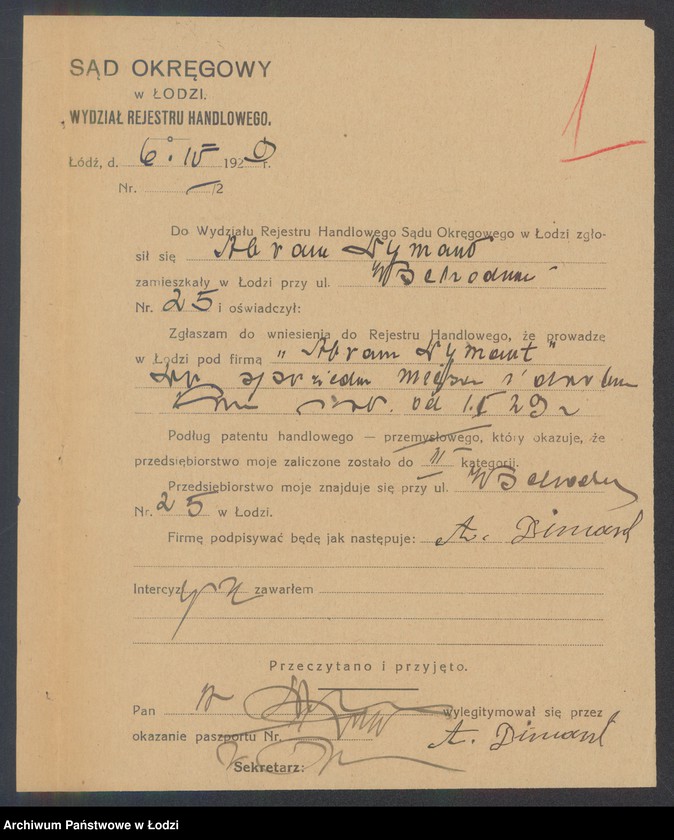 1
SĄD OKRĘGOWY
w ŁODZI.
WYDZIAŁ REJESTRU HANDLOWEGO.
Łódź, d. 6. IV 1929 r.
Nr. /2
Do Wydziału Rejestru Handlowego Sądu Okręgowego w Łodzi zgło-
sił się Abram Dymant
zamieszkały w Łodzi przy ul. Wschodniej
Nr. 25 i oświadczył:
Zgłaszam do wniesienia do Rejestru Handlowego, że prowadzę
w Łodzi pod firmą "Abram Dymant"
mięsa i drobiu
od 1.I 29 r
Podług patentu handlowego — przemysłowego, który okazuje, że
przedsiębiorstwo moje zaliczone zostało do II kategorji.
Przedsiębiorstwo moje znajduje się przy ul. Wschodniej
Nr. 25 w Łodzi.
Firmę podpisywać będę jak następuje: A. Dimant
Intercyzy zawarłem
Przeczytano i przyjęto.
Pan wylegitymował się przez
okazanie paszportu Nr. A. Dimant
Sekretarz:
Archiwum Państwowe w Łodzi